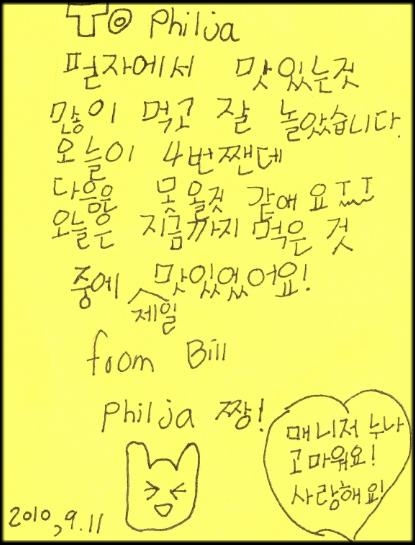 To Philja
펄자에서 맛있는것
많이 먹고 잘 놀았습니다.
오늘이 4번짼데
다음은 못올것 같애요ㅜㅜ
오늘은 지금까지 먹은 것
중에 제일 맛있었어요!
from Bill
Philja 짱!
매니저 누나
고마워요!
사랑해요!
2010, 9.11